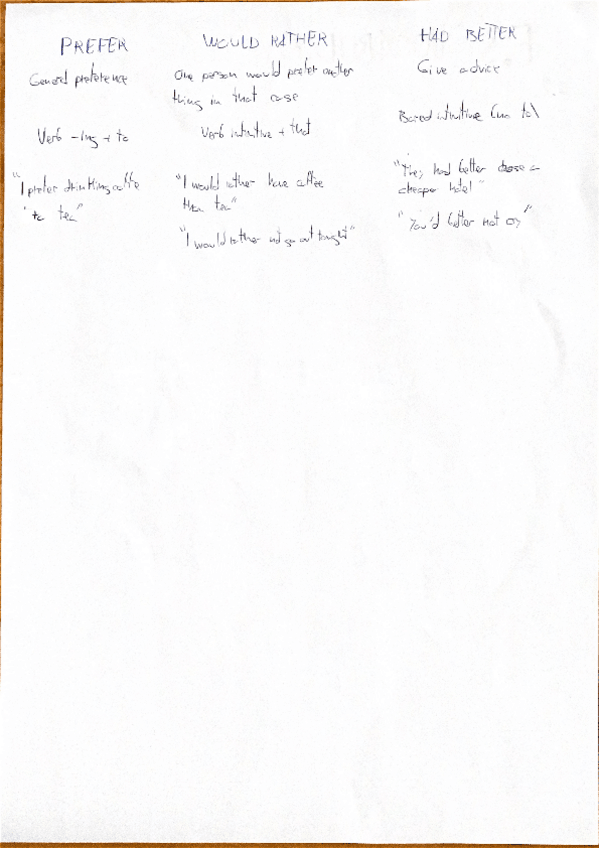 PREFER
General preference
Verb -ing + to
"I prefer drinking coffe
to tea"
WOULD RATHER
One person would prefer another
thing in that case
Verb infinitive + that
"I would rather have coffee
than tea"
"I would rather not go out tonight"
HAD BETTER
Give advice
Based infinitive (un to)
"They had better choose a
cheaper hotel"
"You'd better not cry"